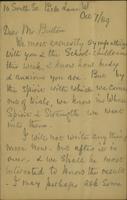 16 South St. Park Lane W
Oct 7/89
Dear Mr Button
We most earnestly sympathize
with you & the School children in
this week, & know how busy
& anxious you are. But by
the Spirit with which we
of trials, we know the
Spirit & Strength we went
into them.
I will not write any thing
more now, but after it is
over, & we shall be most
interested to know the result
I may perhaps ask some